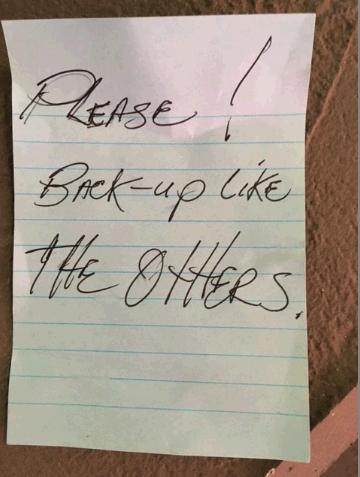 PLEASE !
BACK-up LiKE
THE OTHERS.